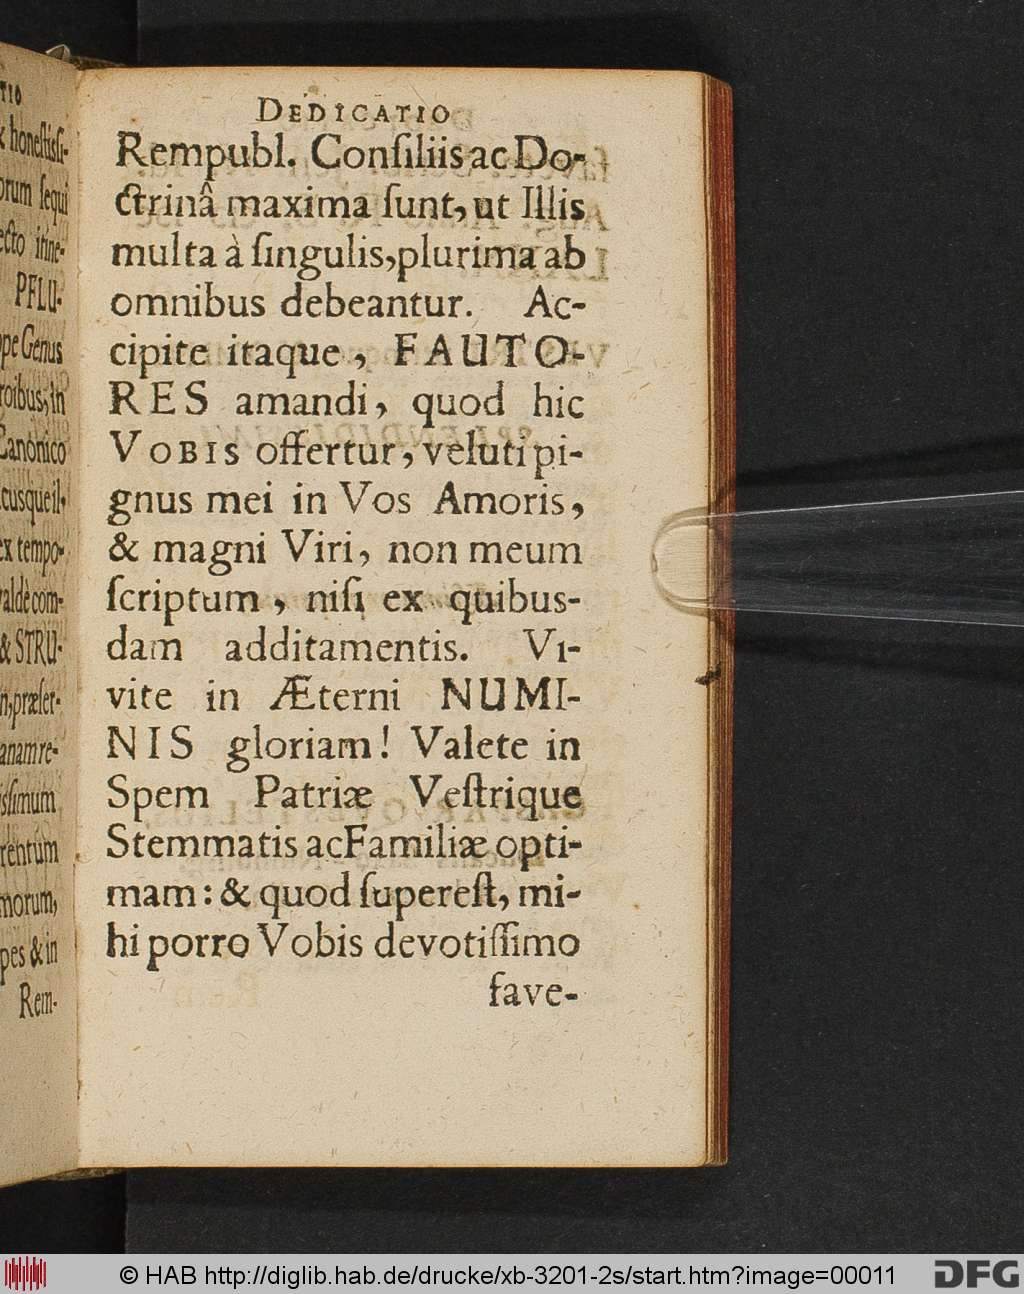 TIO
honestissi-
orum sequi
ecto itine-
PFLU-
pe Genus
roibus, in
Canonico
cusque il-
ex tempo-
valdè com-
& STRU-
n, præser-
anam re-
issimum
rentum
morum,
pes & in
Rem-
DEDICATIO
Rempubl. Conſiliis ac Do-
ctrinâ maxima ſunt, ut Illis
multa à ſingulis, plurima ab
omnibus debeantur. Ac-
cipite itaque, FAUTO-
RES amandi, quod hic
VOBIS offertur, veluti pi-
gnus mei in Vos Amoris,
& magni Viri, non meum
ſcriptum, niſi ex quibus-
dam additamentis. Vi-
vite in Æterni NUMI-
NIS gloriam! Valete in
Spem Patriæ Veſtrique
Stemmatis ac Familiæ opti-
mam: & quod ſupereſt, mi-
hi porro Vobis devotiſſimo
fave-
© HAB http://diglib.hab.de/drucke/xb-3201-2s/start.htm?image=00011
DFG